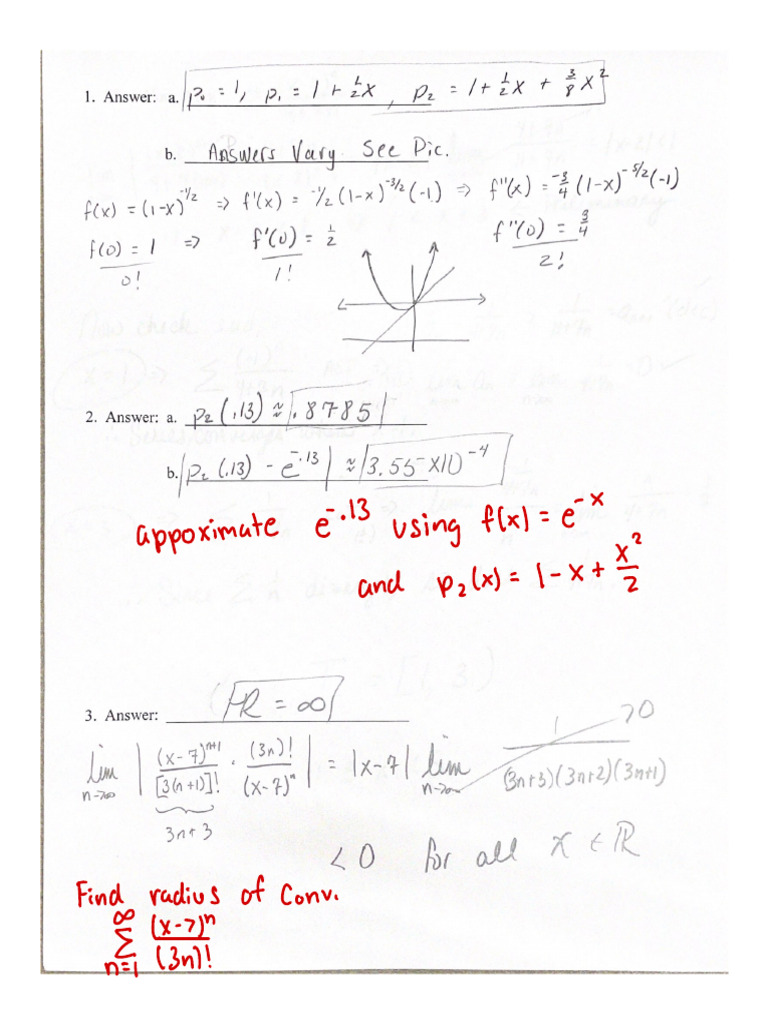 1. Answer: a. p₀ = 1, p₁ = 1 + ½x, p₂ = 1 + ½x + ⅜x²
b. Answers Vary. See Pic.
f(x) = (1-x)^{-1/2} ⇒ f'(x) = -1/2 (1-x)^{-3/2} (-1) ⇒ f''(x) = -3/4 (1-x)^{-5/2} (-1)
f(0) = 1 / 0! ⇒ f'(0) = 1/2 / 1! f''(0) = 3/4 / 2!
2. Answer: a. p₂(.13) ≈ .8785
b. |p₂(.13) - e^{-.13}| ≈ 3.55 × 10^{-4}
appoximate e^{-.13} using f(x) = e^{-x}
and p₂(x) = 1 - x + x²/2
3. Answer: R = ∞
lim n→∞ | (x-7)^{n+1} / [3(n+1)]! · (3n)! / (x-7)^n | = |x-7| lim n→∞ 1 / (3n+3)(3n+2)(3n+1) → 0
3n+3
< 0 for all x ∈ ℝ
Find radius of Conv.
∞ Σ n=1 (x-7)^n / (3n)!